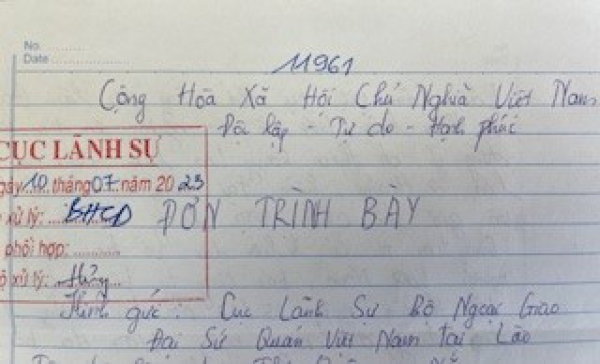 No.
Date
11961
Cộng Hòa Xã Hội Chủ Nghĩa Việt Nam
Độc lập - Tự do - Hạnh phúc
CỤC LÃNH SỰ
gày 10 tháng 07 năm 2023
xử lý: BHCD
ĐƠN TRÌNH BÀY
phối hợp:
ộ xử lý: Hưng
Kính gửi: Cục Lãnh Sự Bộ Ngoại Giao
Đại Sứ Quán Việt Nam Tại Lào